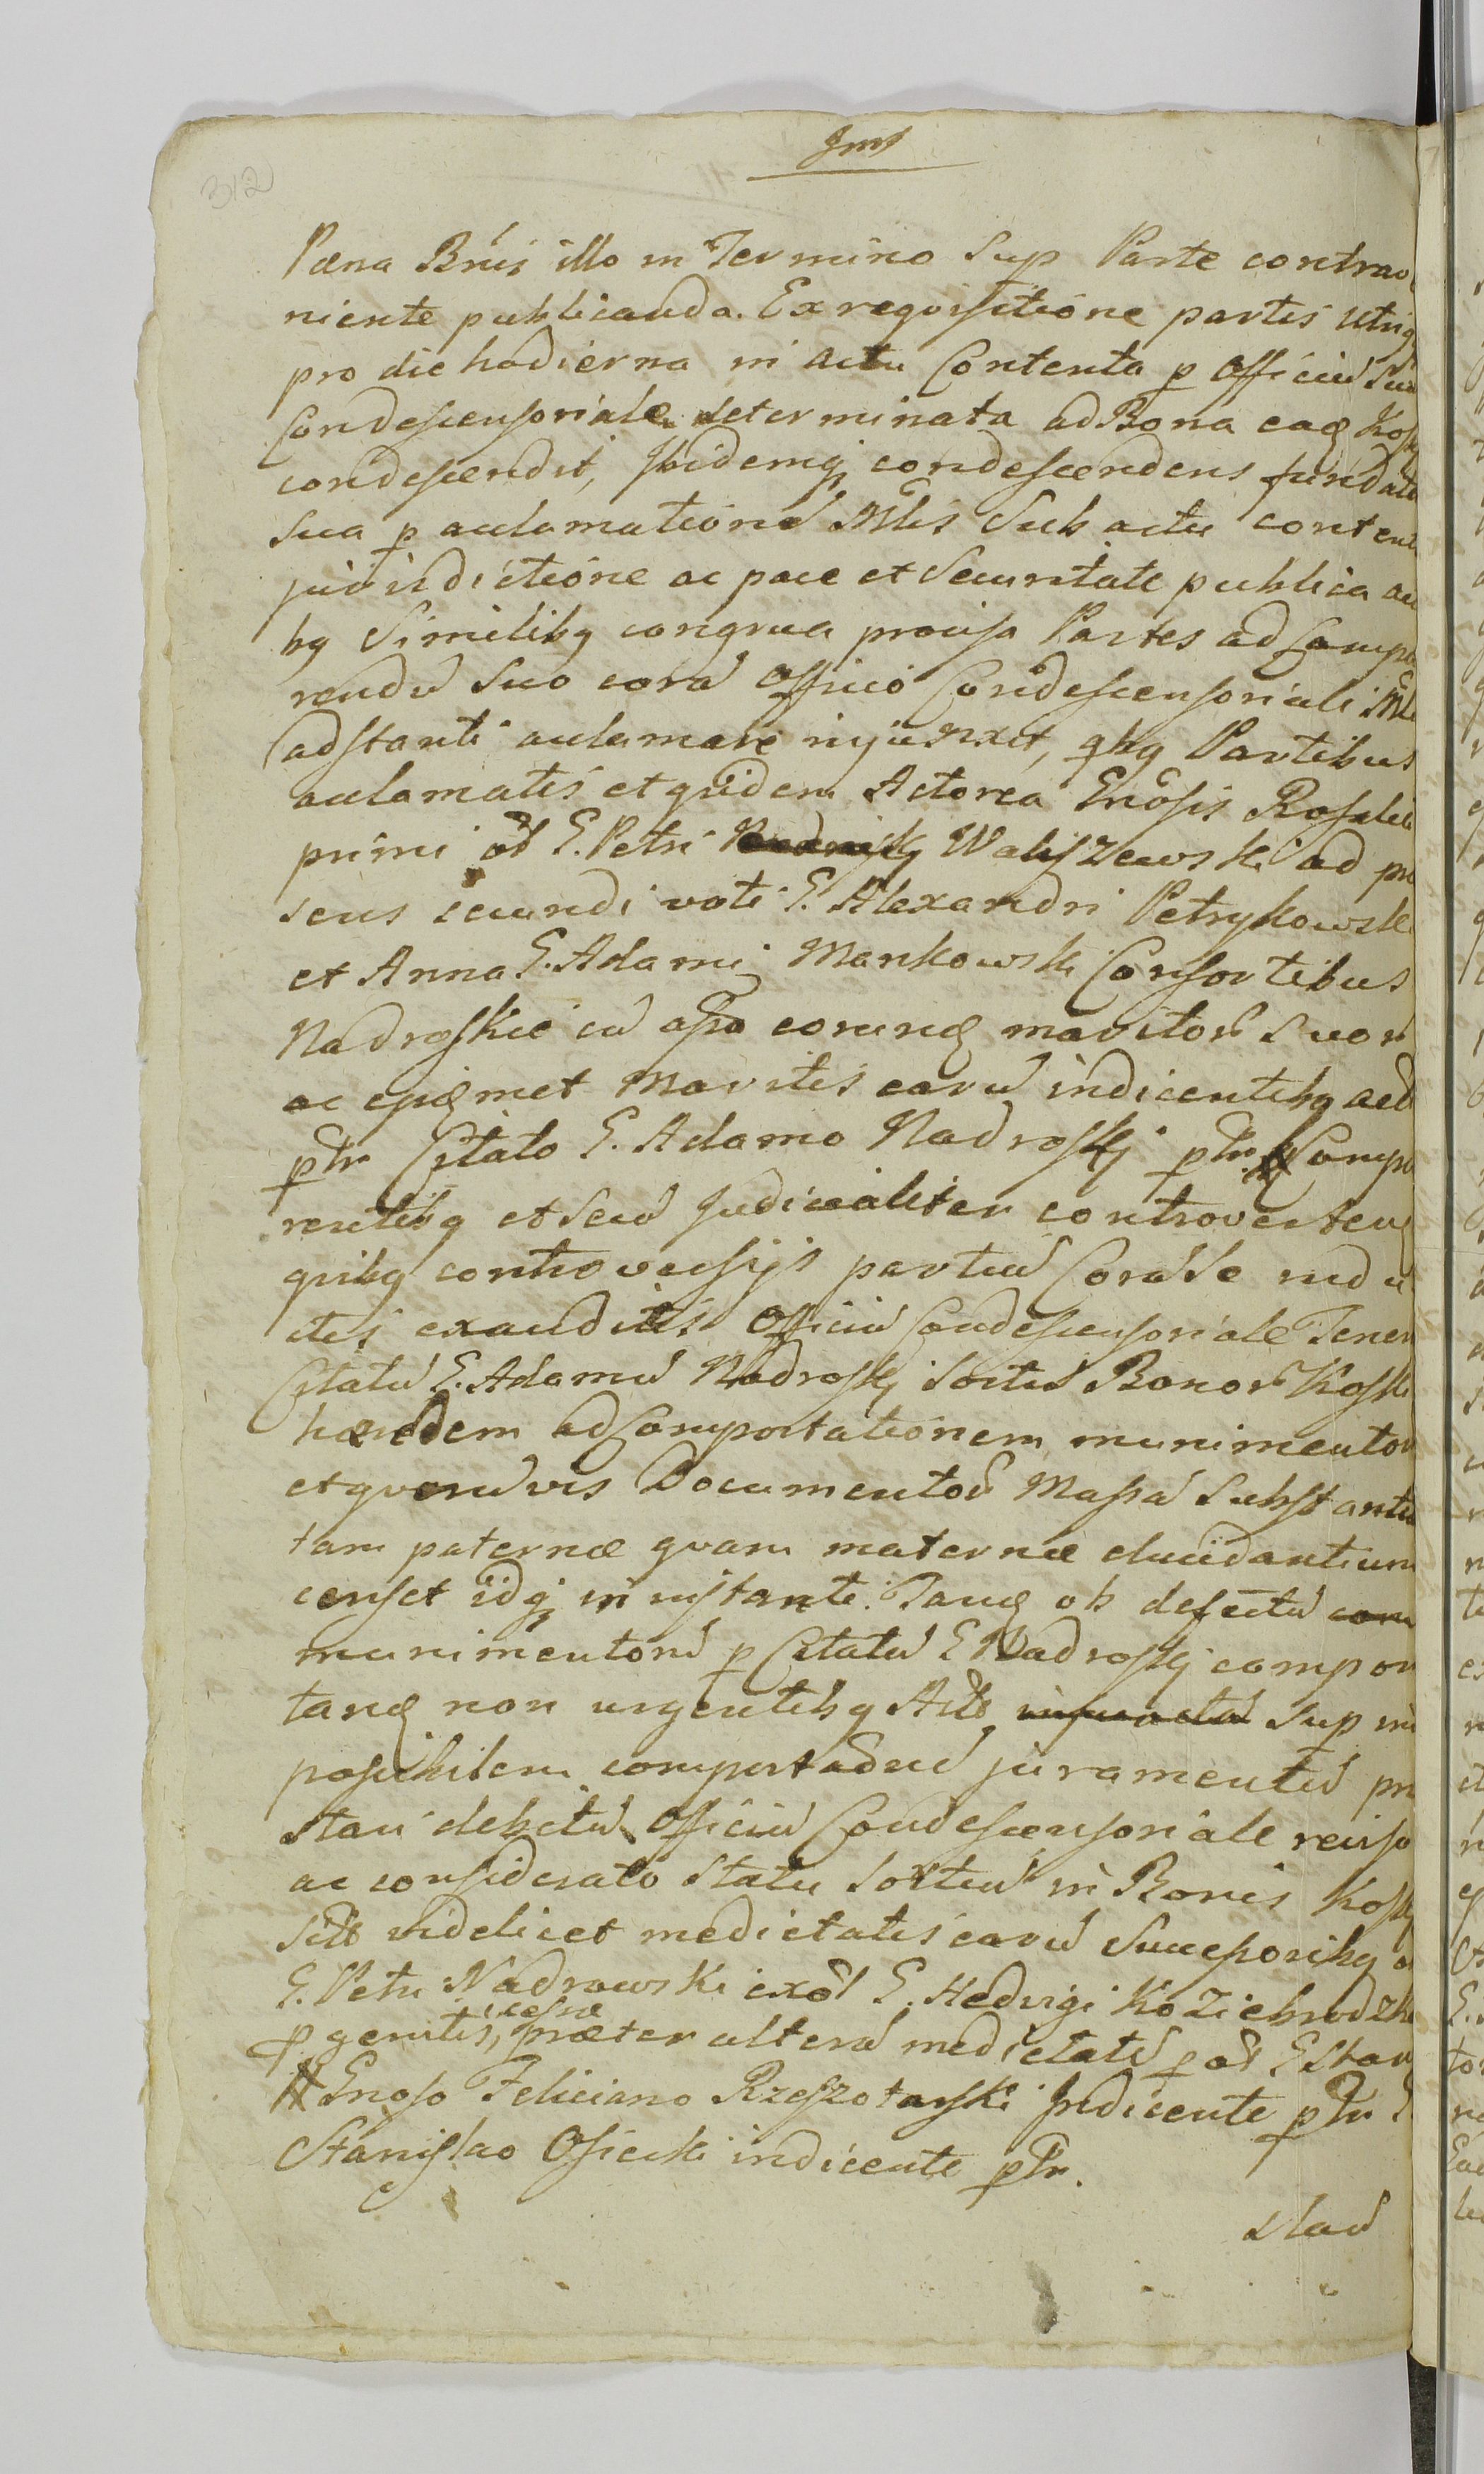 312
Pæna Bnis illo in Termino Sup Parte contrav
niente publicanda. Ex requisitione partis utriq
pro die hodierna in actu Contenta p Officiu Suu
Condescensoriale determinata ad Bona eaq Kosk
condescendit, Ibidemq condescendens fundata
sua p acclamationē Mlis Sub actu content
jurisdictione ac pace et Securitate publica act
bq Similibq congrua provisa Partes ad Compa
rendū Suo corā Officio Condescensoriali Mli
adstanti acclamari injunxit, qbq Partibus
acclamatis et quidem Actorea Gnosis Rosalia
primi ol G. Petri Waliszewski ad præ
sens secundi voti G. Alexandri Petrykowski
et Anna G. Adami Mankowski Consortibus
Nadroskie cū assa eorunq maritorū Suorū
ac ipsismet Maritis earū indicentibq act
ptr Citato G. Adamo Nadroskj ptr Compa
rentibq et Secū Judicialiter controverten
quibq controversijs partiū Corā Se indu
ctis exauditis Officiū Condescensoriale Tener
Citatū G. Adamū Nadroskj Sortis Bonorū Koski
hæredem ad Comportationem munimentor
et quorūvis Documentorū Massā Substantia
tam paternæ quam maternæ elucidantium
censet idq in instanti. Tanq ob defectū
munimentorū p Citatū G Nadroskj compor
tanq non urgentibq Actis Sup im
possibilem comportādū juramentū præ
stari debitū Officiū Condescensoriale reviso
ac considerato Statu Sortiū in Bonis Kosk
videlicet medietatis earū Successoribq
G. Petri Nadrowski ex ol G. Hedvigi Koziebrodzka
p genitis, cessæ præter alterā medietatē p ol G Stan
Gnoso Feliciano Rzeszotarski Indicente ptr
Stanislao Osiecki indicente ptr.